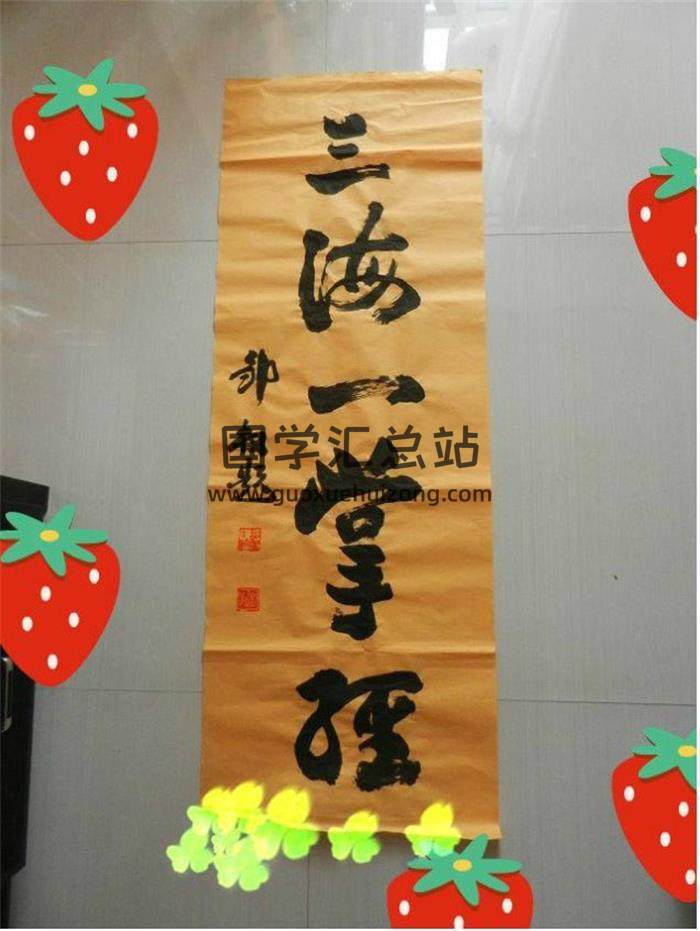 三海一掌經
題
国学汇总站
www.guoxuehuizong.com